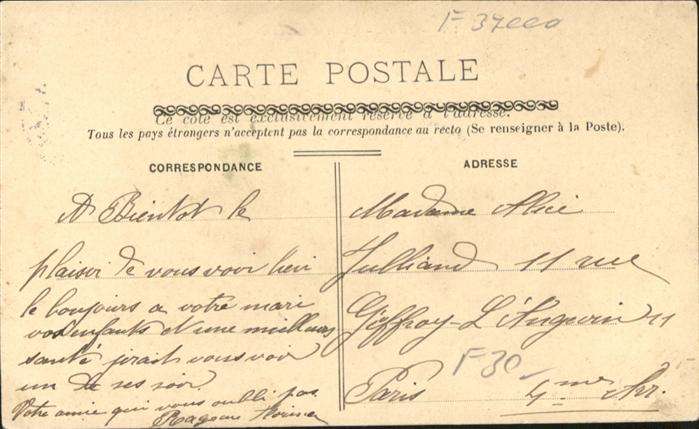 F 37000
CARTE POSTALE
Ce côté est exclusivement réservé à l'adresse.
Tous les pays étrangers n'acceptent pas la correspondance au recto (Se renseigner à la Poste).
CORRESPONDANCE
A Bientot le
plaisir de vous voir bien
le boujours a votre mari
vos enfants et une meilleurs
santé jirait vous voir
un de ses soir
Votre amie qui vous oubli pas
ADRESSE
Madame Alice
Julliand 11 rue
Geffroy-L'Angevin 11
F30
Paris 4me Arr.